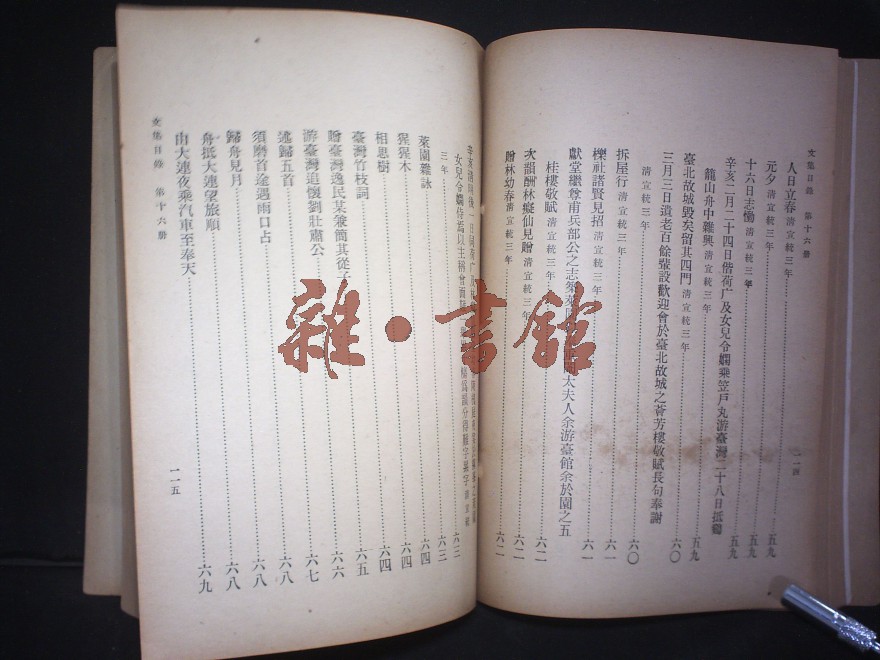 文集目錄 第十六册
人日立春 清宣統三年 五九
元夕 清宣統三年 五九
十六日志慟 清宣統三年 五九
辛亥二月二十四日偕荷广及女兒令嫻乘笠戶丸游臺灣二十八日抵
雞籠山舟中雜興 清宣統三年 五九
三月三日遺老百餘輩設歡迎會於臺北故城之薈芳樓敬賦長句奉謝
清宣統三年 六〇
臺北故城毀矣留其四門 清宣統三年 六〇
拆屋行 清宣統三年 六〇
櫟社諸賢見招 清宣統三年 六一
獻堂繼尊甫兵部公之志築萊園 太夫人余游臺館余於園之五
桂樓敬賦 清宣統三年 六一
次韻酬林癡仙見贈 清宣統三年 六二
贈林幼春 清宣統三年 六二
二一四
辛亥清明後一日同荷广及
女兒令嫻侍焉以主稱會面難 為韻分得難字 字
三年 六三
萊園雜詠 六四
猩猩木 六四
相思樹 六四
臺灣竹枝詞 六五
贈臺灣逸民某兼簡其從子 六六
游臺灣追懷劉壯肅公 六七
述歸五首 六八
須磨首途遇雨口占 六八
歸舟見月 六八
舟抵大連望旅順
由大連夜乘汽車至奉天 六九
文集目錄 第十六册
二一五
雜·書館